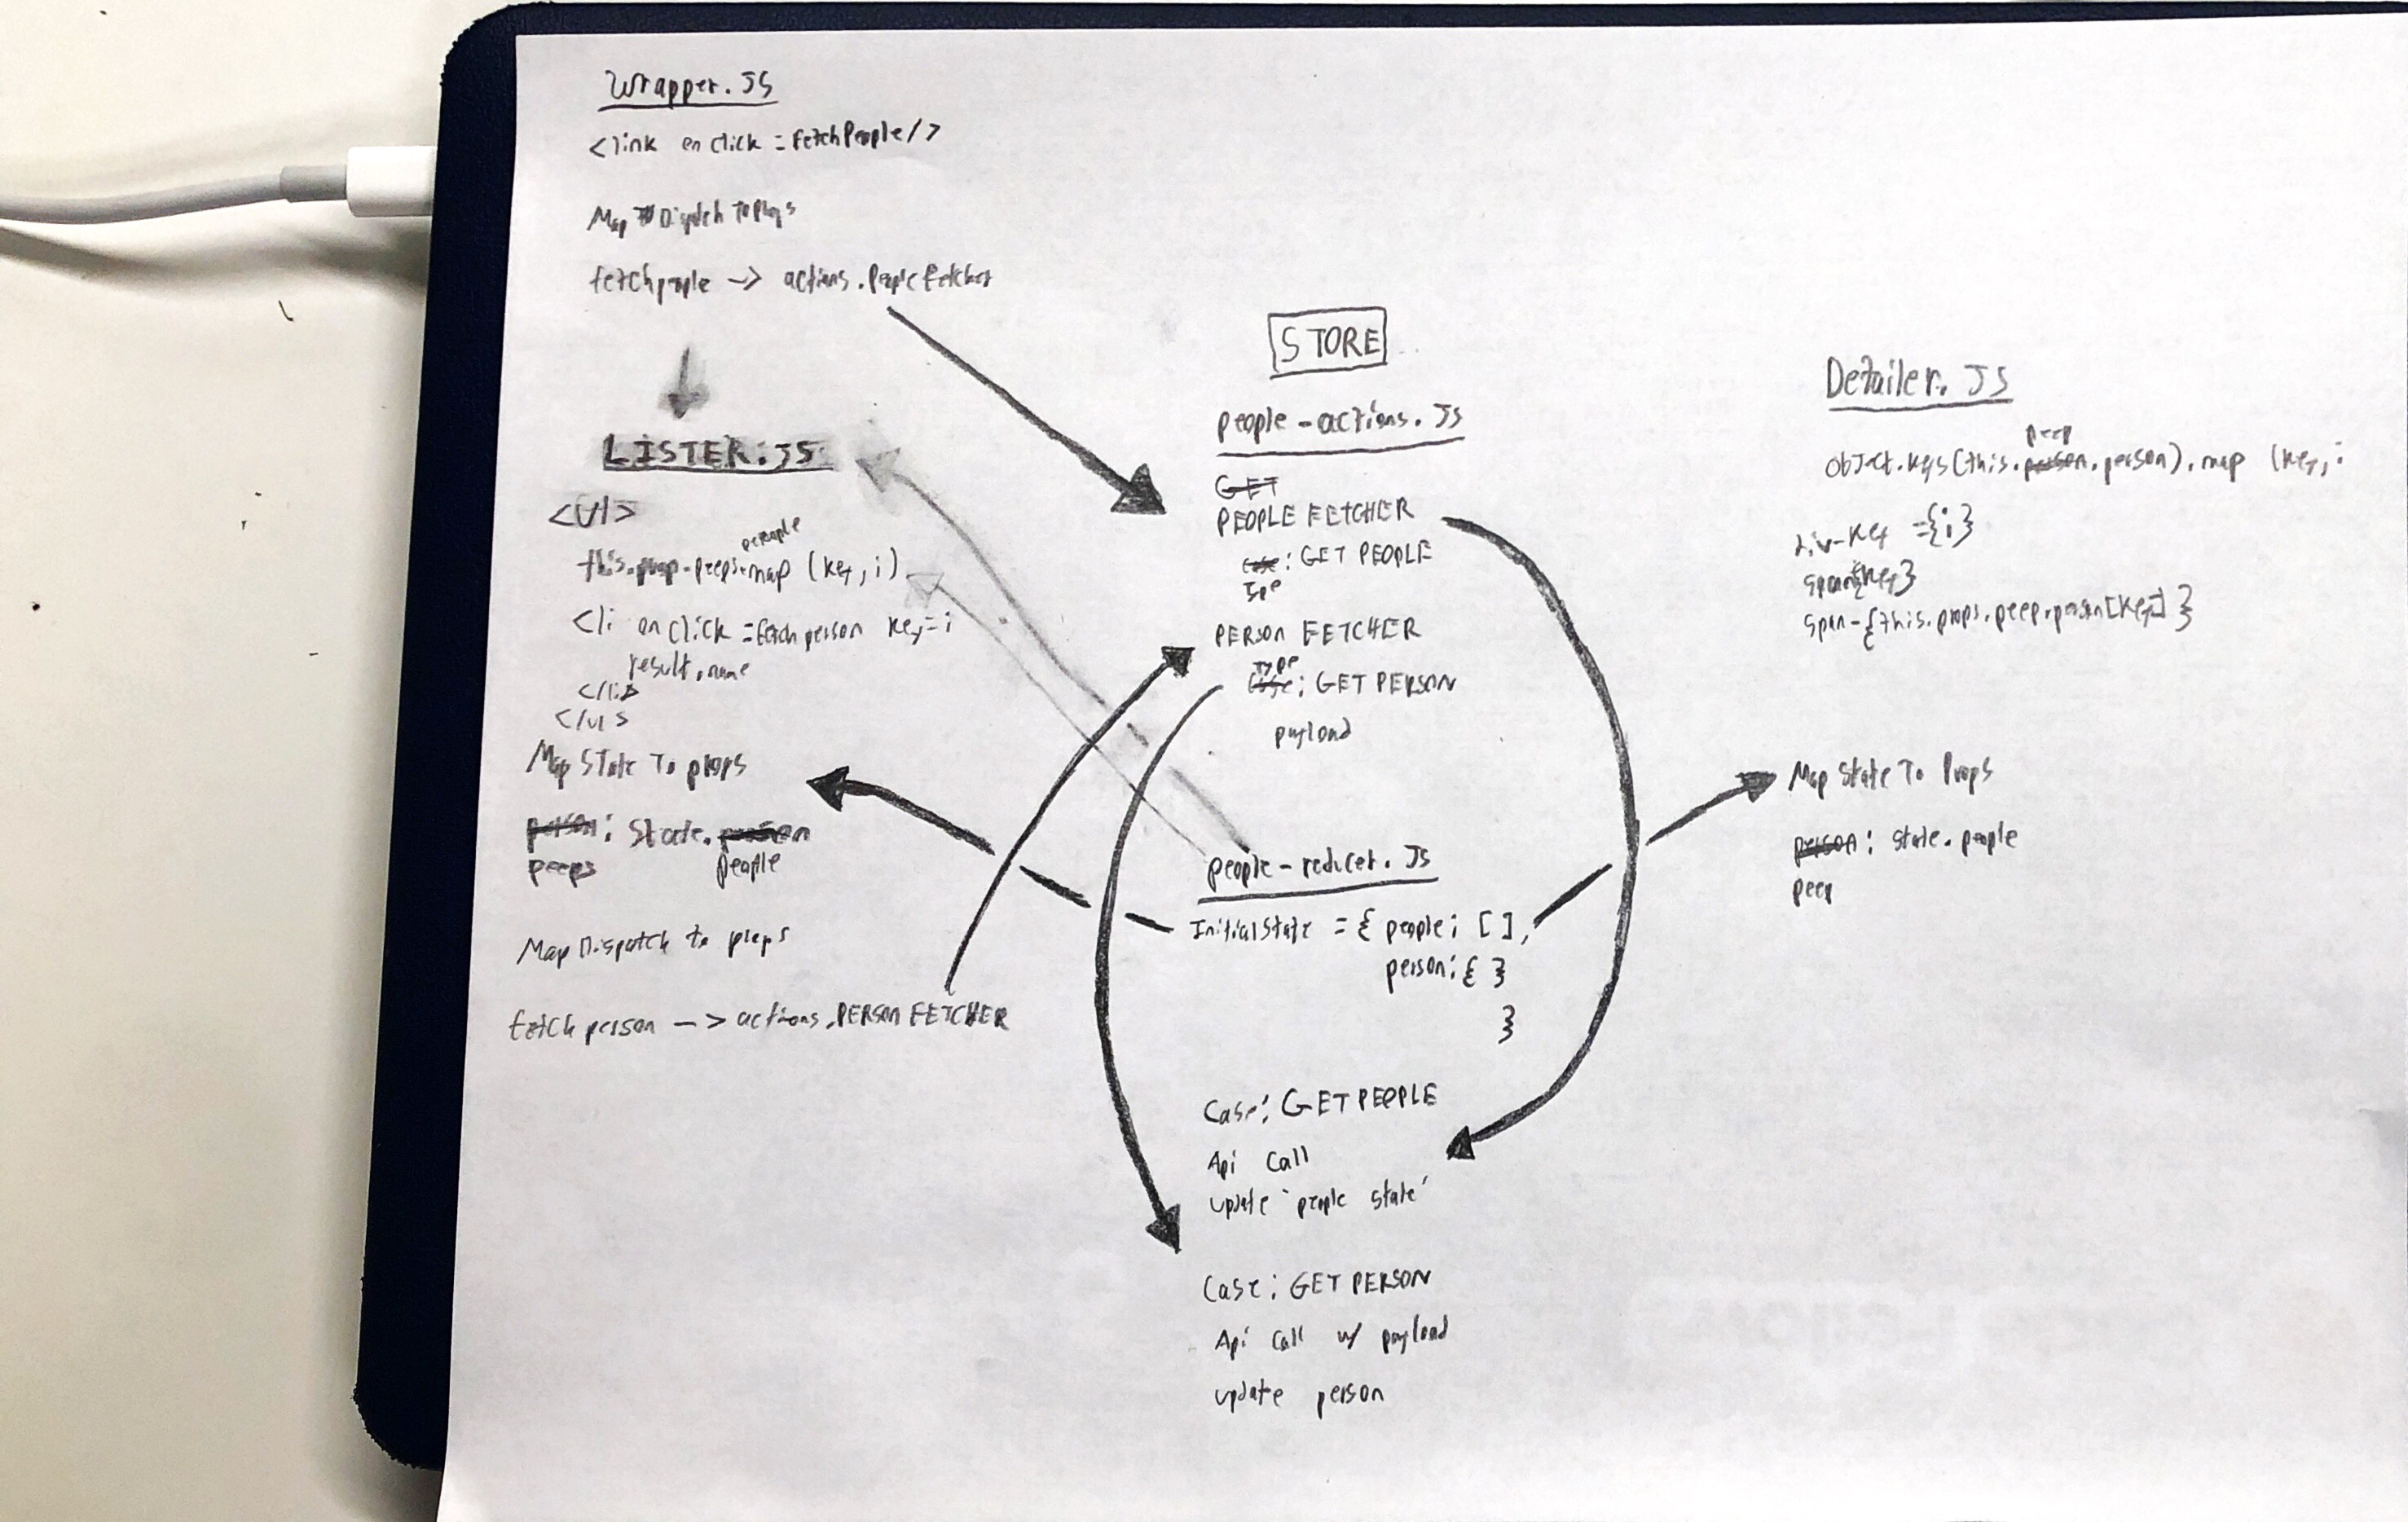 Wrapper.JS
<link onclick = FetchPeople/>
Map Dispatch To Props
fetchpeople -> actions.PeopleFetcher
LISTER.JS
<Ul>
people
this.prop.peeps.map (key, i)
<li onclick = fetch person key = i
result.name
</li>
</ul>
Map State To props
person: State.person
peeps people
Map Dispatch to props
fetch person -> actions.PERSON FETCHER
STORE
people-actions.JS
GET
PEOPLE FETCHER
case: GET PEOPLE
Type
PERSON FETCHER
Type
case: GET PERSON
payload
people-reducer.JS
InitialState = { people: [ ],
person: { }
}
Case: GET PEOPLE
Api Call
update 'people state'
Case: GET PERSON
Api Call w/ payload
update person
Detailer.JS
peep
Object.keys(this.person.person).map (key, i
div-key = {i}
span{key}
span-{this.props.peep.person[key]}
Map State To Props
person: state.people
peep